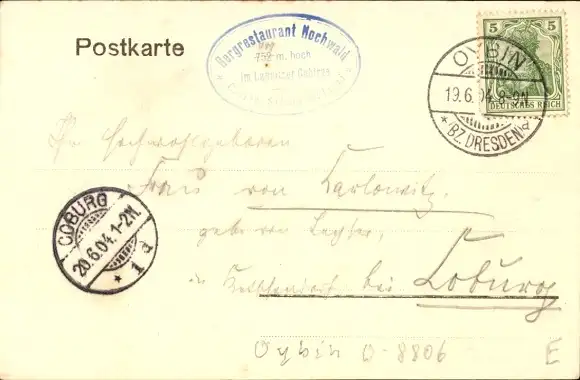 Postkarte
Bergrestaurant Hochwald
752 m. hoch
im Lausitzer Gebirge
5 5
DEUTSCHES REICH
OYBIN
19.6.04. 8-9N.
* BZ. DRESDEN. d
Hochwohlgeboren
Frau von Carlowitz
geb. von
COBURG
20.6.04. 1-2N.
* 1 d
bei Coburg
Oybin O-8806
E